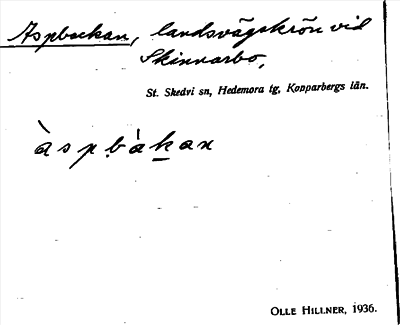 Aspbackan, landsvägskrön vid
Skinnarbo,
St. Skedvi sn, Hedemora tg, Kopparbergs län.
àspḅák̲an
OLLE HILLNER, 1936.